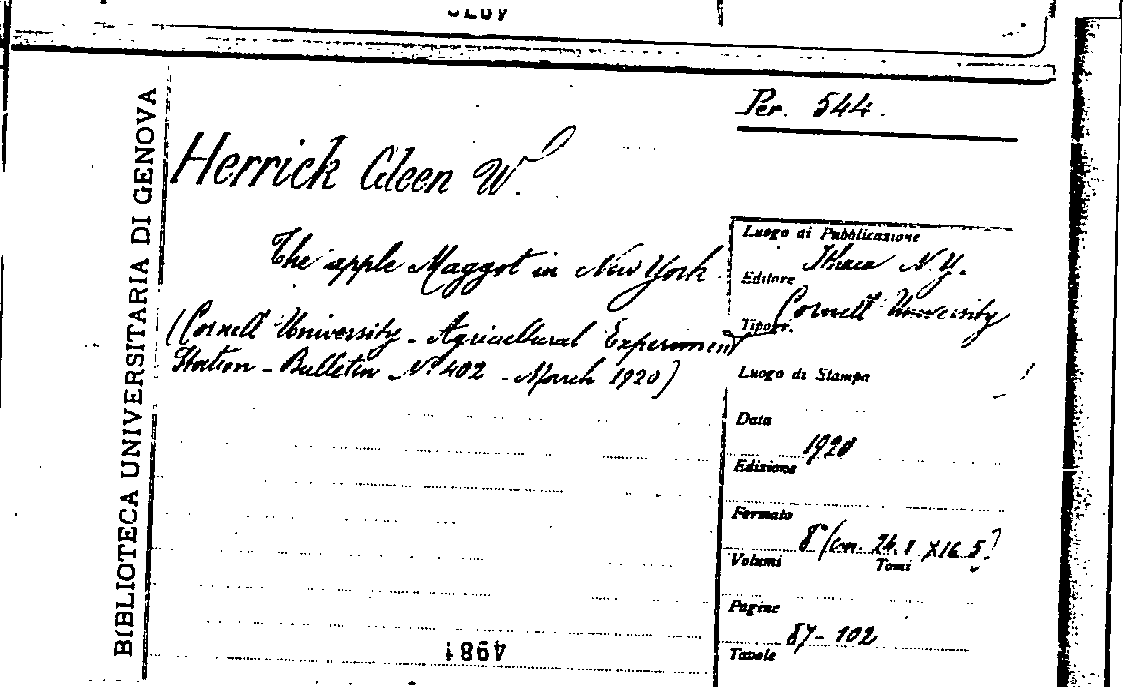 Per. 544.
BIBLIOTECA UNIVERSITARIA DI GENOVA
Herrick Gleen W.
The apple Maggot in New York
(Cornell University - Agricultural Experiment
Station - Bulletin N° 402 - March 1920)
Luogo di Pubblicazione
Ithaca N.Y.
Editore
Cornell University
Tipogr.
Luogo di Stampa
Data
1920
Edizione
Formato
8° (cm. 24.1 X 16.5)
Volumi Tomi
Pagine
87-102
Tavole
4981